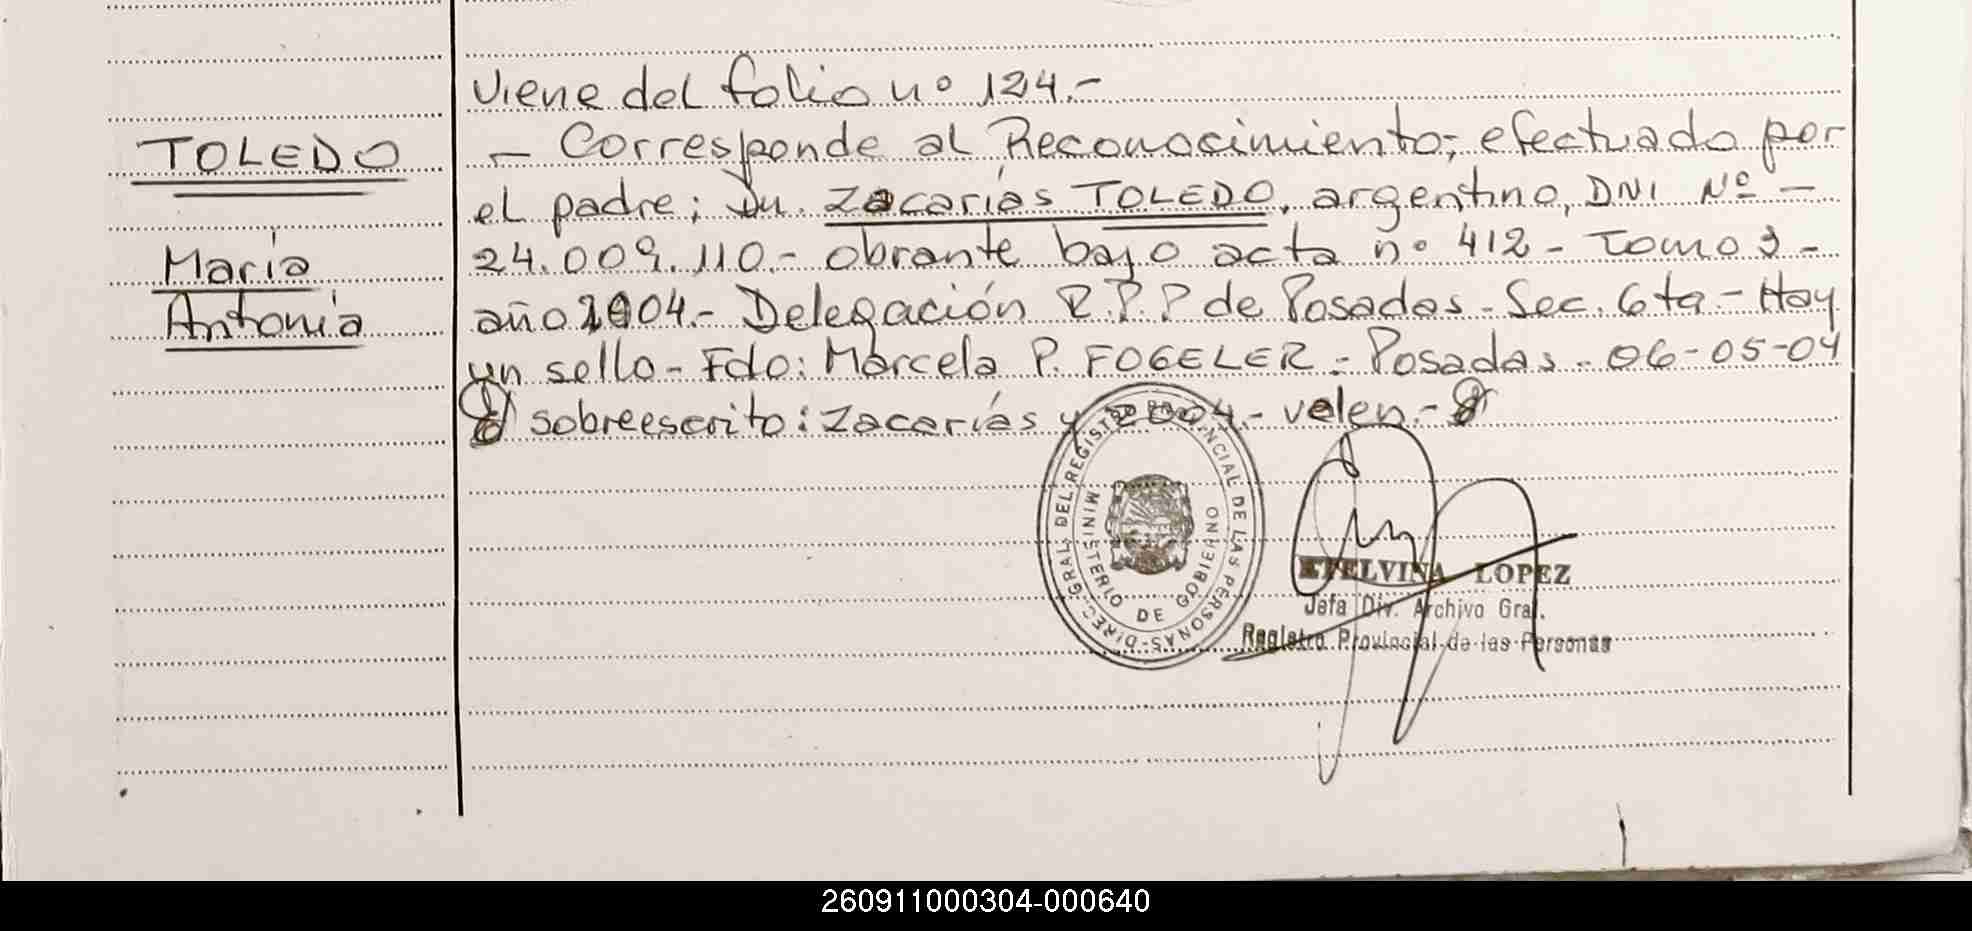 Viene del folio nº 124.-
TOLEDO
— Corresponde al Reconocimiento; efectuado por
el padre; Dn. Zacarías TOLEDO, argentino, DNI Nº —
María
24.009.110.- obrante bajo acta nº 412 - Tomo 3 -
Antonia
año 2004.- Delegación R.P.P de Posadas - Sec. 6ta - Hay
un sello - Fdo: Marcela P. FOGELER - Posadas - 06-05-04
sobreescrito: Zacarías y 2004.- valen.-
DIREC. GRAL. DEL REGISTRO PROVINCIAL DE LAS PERSONAS
MINISTERIO DE GOBIERNO
ETELVINA LOPEZ
Jefa Div. Archivo Gral.
Registro Provincial de las Personas
260911000304-000640